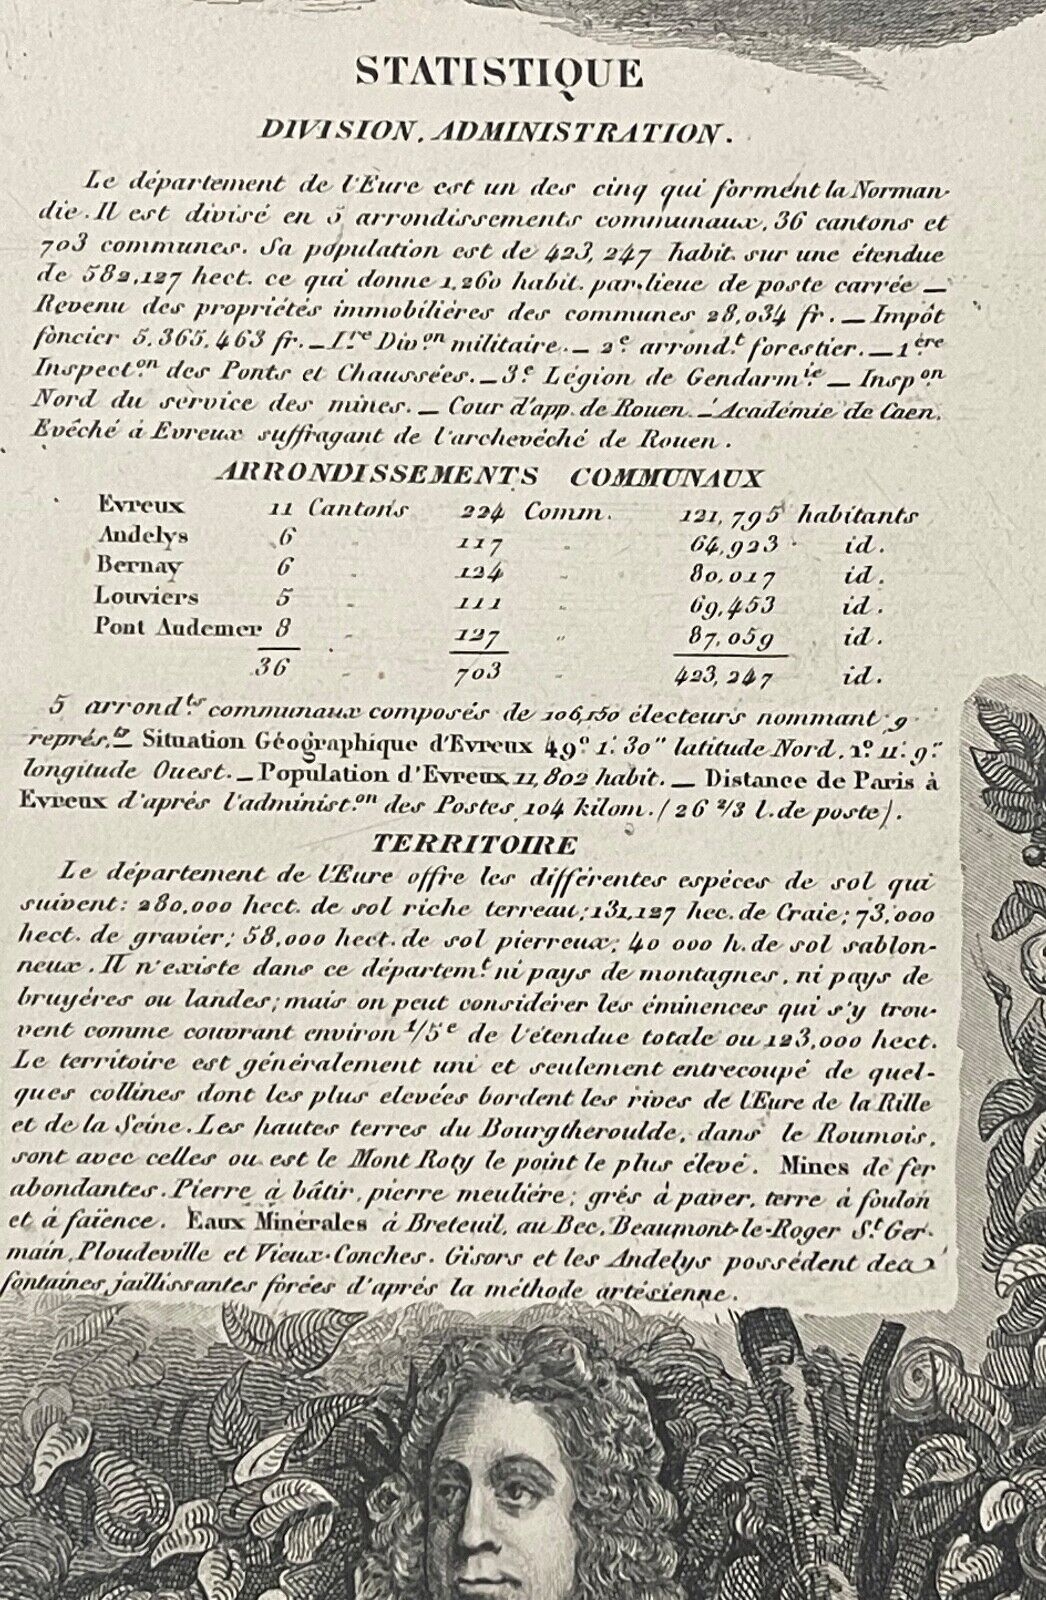 STATISTIQUE
DIVISION, ADMINISTRATION.
Le département de l'Eure est un des cinq qui forment la Norman-
die. Il est divisé en 5 arrondissements communaux, 36 cantons et
703 communes. Sa population est de 423,247 habit. sur une étendue
de 582,127 hect. ce qui donne 1,260 habit. par lieue de poste carrée —
Revenu des propriétés immobilières des communes 28,034 fr. — Impôt
foncier 5,365,463 fr. — 1re Divon militaire. — 2e arrondt forestier. — 1ère
Inspecton des Ponts et Chaussées. — 3e Légion de Gendarmie — Inspon
Nord du service des mines. — Cour d'app. de Rouen. — Académie de Caen.
Evêché à Evreux suffragant de l'archevêché de Rouen.
ARRONDISSEMENTS COMMUNAUX
Evreux 11 Cantons 224 Comm. 121,795 habitants
Andelys 6 " 117 " 64,923 id.
Bernay 6 " 124 " 80,017 id.
Louviers 5 " 111 " 69,453 id.
Pont Audemer 8 " 127 " 87,059 id.
36 " 703 " 423,247 id.
5 arrondts communaux composés de 106,150 électeurs nommant 9
représts — Situation Géographique d'Evreux 49° 1' 30" latitude Nord, 1° 11' 9"
longitude Ouest. — Population d'Evreux 11,802 habit. — Distance de Paris à
Evreux d'après l'administon des Postes 104 kilom. (26 2/3 l. de poste).
TERRITOIRE
Le département de l'Eure offre les différentes espèces de sol qui
suivent: 280,000 hect. de sol riche terreau; 131,127 hec. de Craie; 73,000
hect. de gravier; 58,000 hect. de sol pierreux; 40 000 h. de sol sablon-
neux. Il n'existe dans ce départemt ni pays de montagnes, ni pays de
bruyères ou landes; mais on peut considérer les éminences qui s'y trou-
vent comme couvrant environ 1/5e de l'étendue totale ou 123,000 hect.
Le territoire est généralement uni et seulement entrecoupé de quel-
ques collines dont les plus elevées bordent les rives de l'Eure de la Rille
et de la Seine. Les hautes terres du Bourgtheroulde, dans le Roumois,
sont avec celles ou est le Mont Roty le point le plus élevé. Mines de fer
abondantes. Pierre à bâtir, pierre meulière; grès à paver, terre à foulon
et à faïence. Eaux Minérales à Breteuil, au Bec, Beaumont-le-Roger St Ger-
main, Ploudeville et Vieux-Conches. Gisors et les Andelys possédent des
fontaines jaillissantes forées d'après la méthode artésienne.